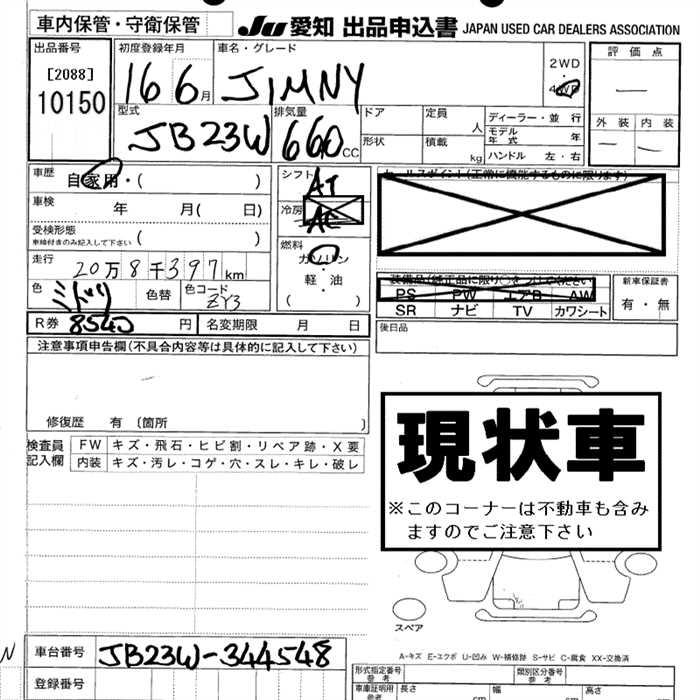 車内保管・守衛保管 JU 愛知 出品申込書 JAPAN USED CAR DEALERS ASSOCIATION
出品番号 初度登録年月 車名・グレード 2WD 評価点
[2088] 16 6月 JIMNY ・ ー
10150 4WD
型式 排気量 ドア 定員 ディーラー・並行 外装 内装
JB23W 660cc 人 モデル年式 年 ー ー
形状 積載 kg ハンドル 左・右
車歴 自家用・( ) シフト AT セールスポイント(正常に機能するものに限ります)
車検 年 月( 日) 冷房 AC
受検形態 ( )
車検付きのみ記入して下さい
燃料 ガソリン
走行 20万8千397km 軽・油
( )
装備品(純正品に限り○をつけてください) 新車保証書
色 ミドリ 色替 色コード ZY3 PS PW エアB AW 有・無
SR ナビ TV カワシート
R券 8540円 名変期限 月 日 後日品
注意事項申告欄(不具合内容等は具体的に記入して下さい)
修復歴 有 〔箇所 〕
現状車
※このコーナーは不動車も含み
ますのでご注意下さい
検査員記入欄 FW キズ・飛石・ヒビ割・リペア跡・X要
内装 キズ・汚レ・コゲ・穴・スレ・キレ・破レ
スペア
N 車台番号 JB23W-344548
A-キズ E-エクボ U-凹み W-補修跡 S-サビ C-腐食 XX-交換済
登録番号 形式指定番号 参考 類別区分番号 参考
車庫証明用参考 長さ cm 幅 cm 高さ